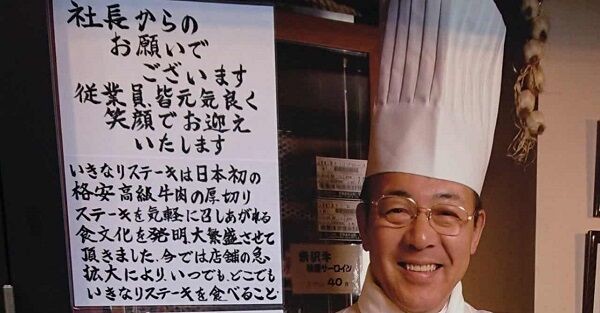 社長からの
お願いで
ございます
従業員、皆元気良く
笑顔でお迎え
いたします
いきなりステーキは日本初の
格安高級牛肉の厚切り
ステーキを気軽に召しあがれる
食文化を発明、大繁盛させて
頂きました。今では店舗の急
拡大により、いつでも、どこでも
いきなりステーキを食べること